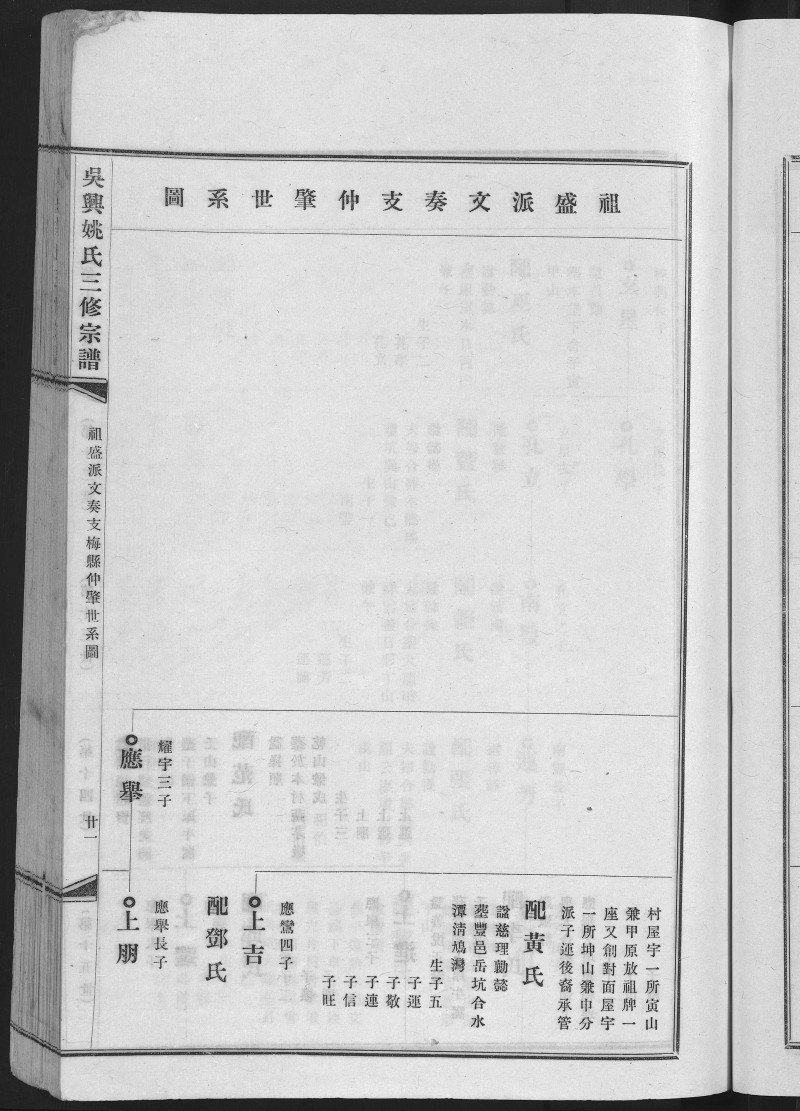 祖盛派文奏支仲肇世系圖
村屋宇一所寅山
兼甲原放祖牌一
座又創對面屋宇
一所坤山兼申分
派子運後裔承管
配黃氏
諡慈理勤懿
塟豐邑岳坑合水
潭清鳩灣
生子五
子運
子敬
子連
子信
子旺
應鸞四子
上吉
配鄧氏
耀宇三子
應舉
應舉長子
上朋
吳興姚氏三修宗譜
祖盛派文奏支梅縣仲肇世系圖
廿一